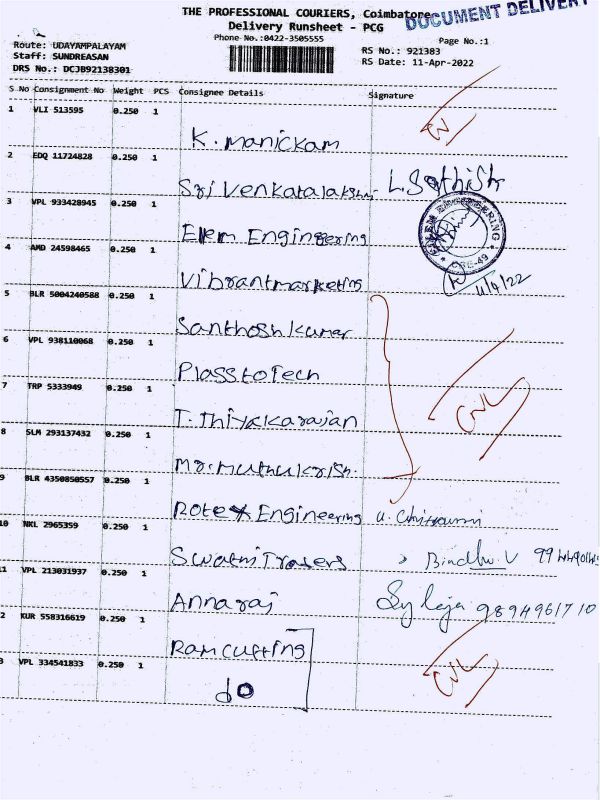 THE PROFESSIONAL COURIERS, Coimbatore
DOCUMENT DELIVERY
Delivery Runsheet - PCG
Phone No.:0422-3505555
Page No.:1
Route: UDAYAMPALAYAM
RS No.: 921383
Staff: SUNDREASAN
RS Date: 11-Apr-2022
DRS No.: DCJB92138301
S No Consignment No Weight PCS Consignee Details Signature
1 VLI 513595 0.250 1
K. manickam
2 EDQ 11724828 0.250 1
Sri Venkatalakshmi L. Sathish
3 VPL 933428945 0.250 1
Elem Engineering
ELEM ENGINEERING
CBE-49
4 AMD 24598465 0.250 1
Vibrantmarketing
11/4/22
5 BLR 5004240588 0.250 1
Santhoshkumar
6 VPL 938110068 0.250 1
PlasstoTech
7 TRP 5333949 0.250 1
T. Thiyakarajan
8 SLM 293137432 0.250 1
Mr. Muthukrish.
9 BLR 4350850557 0.250 1
Rotex Engineering
10 NKL 2965359 0.250 1
Swathi Traders Bindhu. V
11 VPL 213031937 0.250 1
Annaraj Syleja 9894961710
12 KUR 558316619 0.250 1
Ram cutting
3 VPL 334541833 0.250 1
do